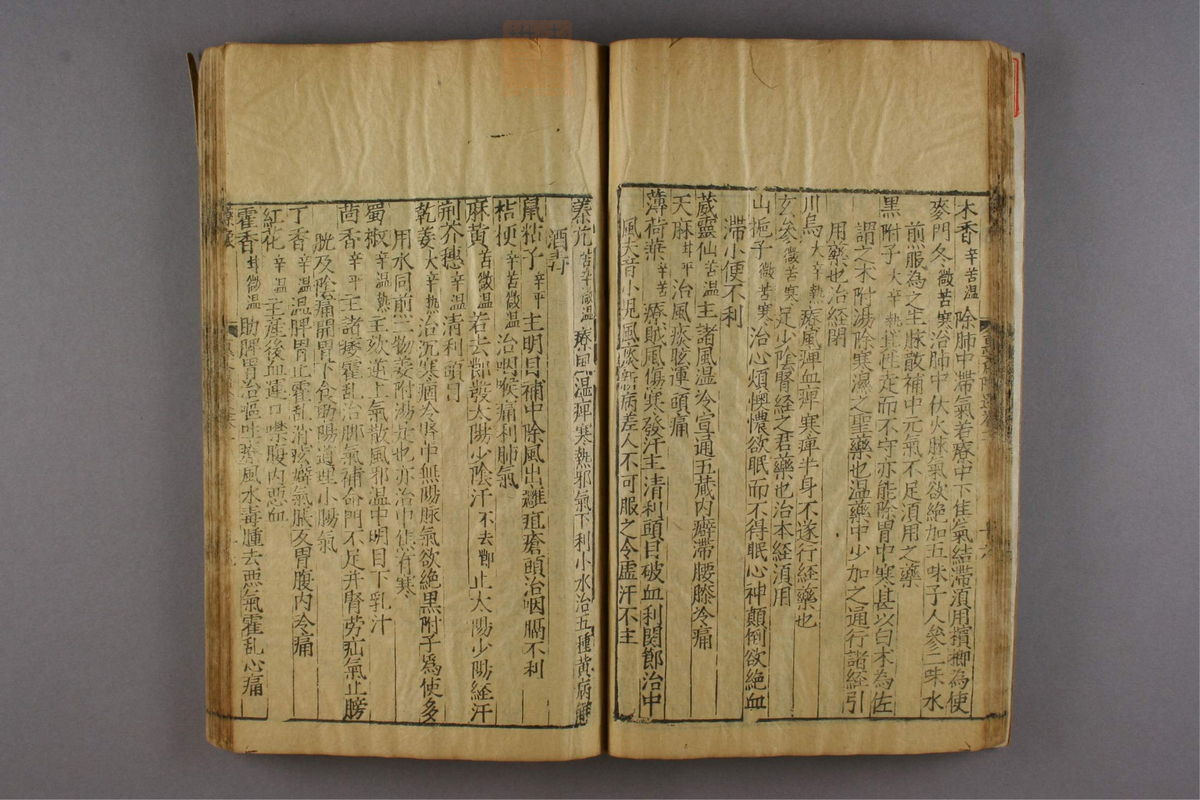 木香辛苦温除肺中滯氣若療中下焦氣結滯須用檳榔為使
麥門冬微苦寒治肺中伏火脉氣欲絶加五味子人參二味水
煎服為之生脉散補中元氣不足須用之藥
黑附子大辛熱其性走而不守亦能除胃中寒甚以白术為佐
謂之术附湯除寒濕之聖藥也温藥中少加之通行諸經引
用藥也治經閉
川烏大辛熱療風痺血痺寒痺半身不遂行經藥也
玄參微苦寒足少隂腎經之君藥也治本經須用
山梔子微苦寒治心煩懊憹欲眠而不得眠心神顛倒欲絶血
滯小便不利
葳靈仙苦温主諸風温冷宣通五蔵内癖滯腰膝冷痛
天麻苷平治風痰眩運頭痛
薄荷葉辛苦療賊風傷寒發汗主清利頭目破血利関節治中
風失音小児風痰新病差人不可服之令虚汗不主
秦艽苦辛微温療風温痺寒熱邪氣下利小水治五種黄病解
酒毒
鼠粘子辛平主明目補中除風出癰疽瘡頭治咽膈不利
桔梗辛苦微温治咽喉痛利肺氣
麻黄苦微温若去節發太陽少隂汗不去節止太陽少陽經汗
荆芥穂辛温清利頭目
乾姜大辛熱治沉寒痼冷腎中無陽脉氣欲絶黑附子爲使多
用水同煎二物姜附湯是也亦治中焦有寒
蜀椒辛温熱主欬逆上氣散風邪温中明目下乳汁
茴香辛平主諸瘻霍乱治脚氣補命門不足并腎劳疝氣止膀
胱及隂痛開胃下食助陽道理小腸氣
丁香辛温温脾胃止霍乱消痃癖氣脹反胃腹内冷痛
紅花辛温主産後血運口噤腹内悪血
霍香苷微温助脾胃治嘔吐療風水毒腫去悪氣霍乱心痛